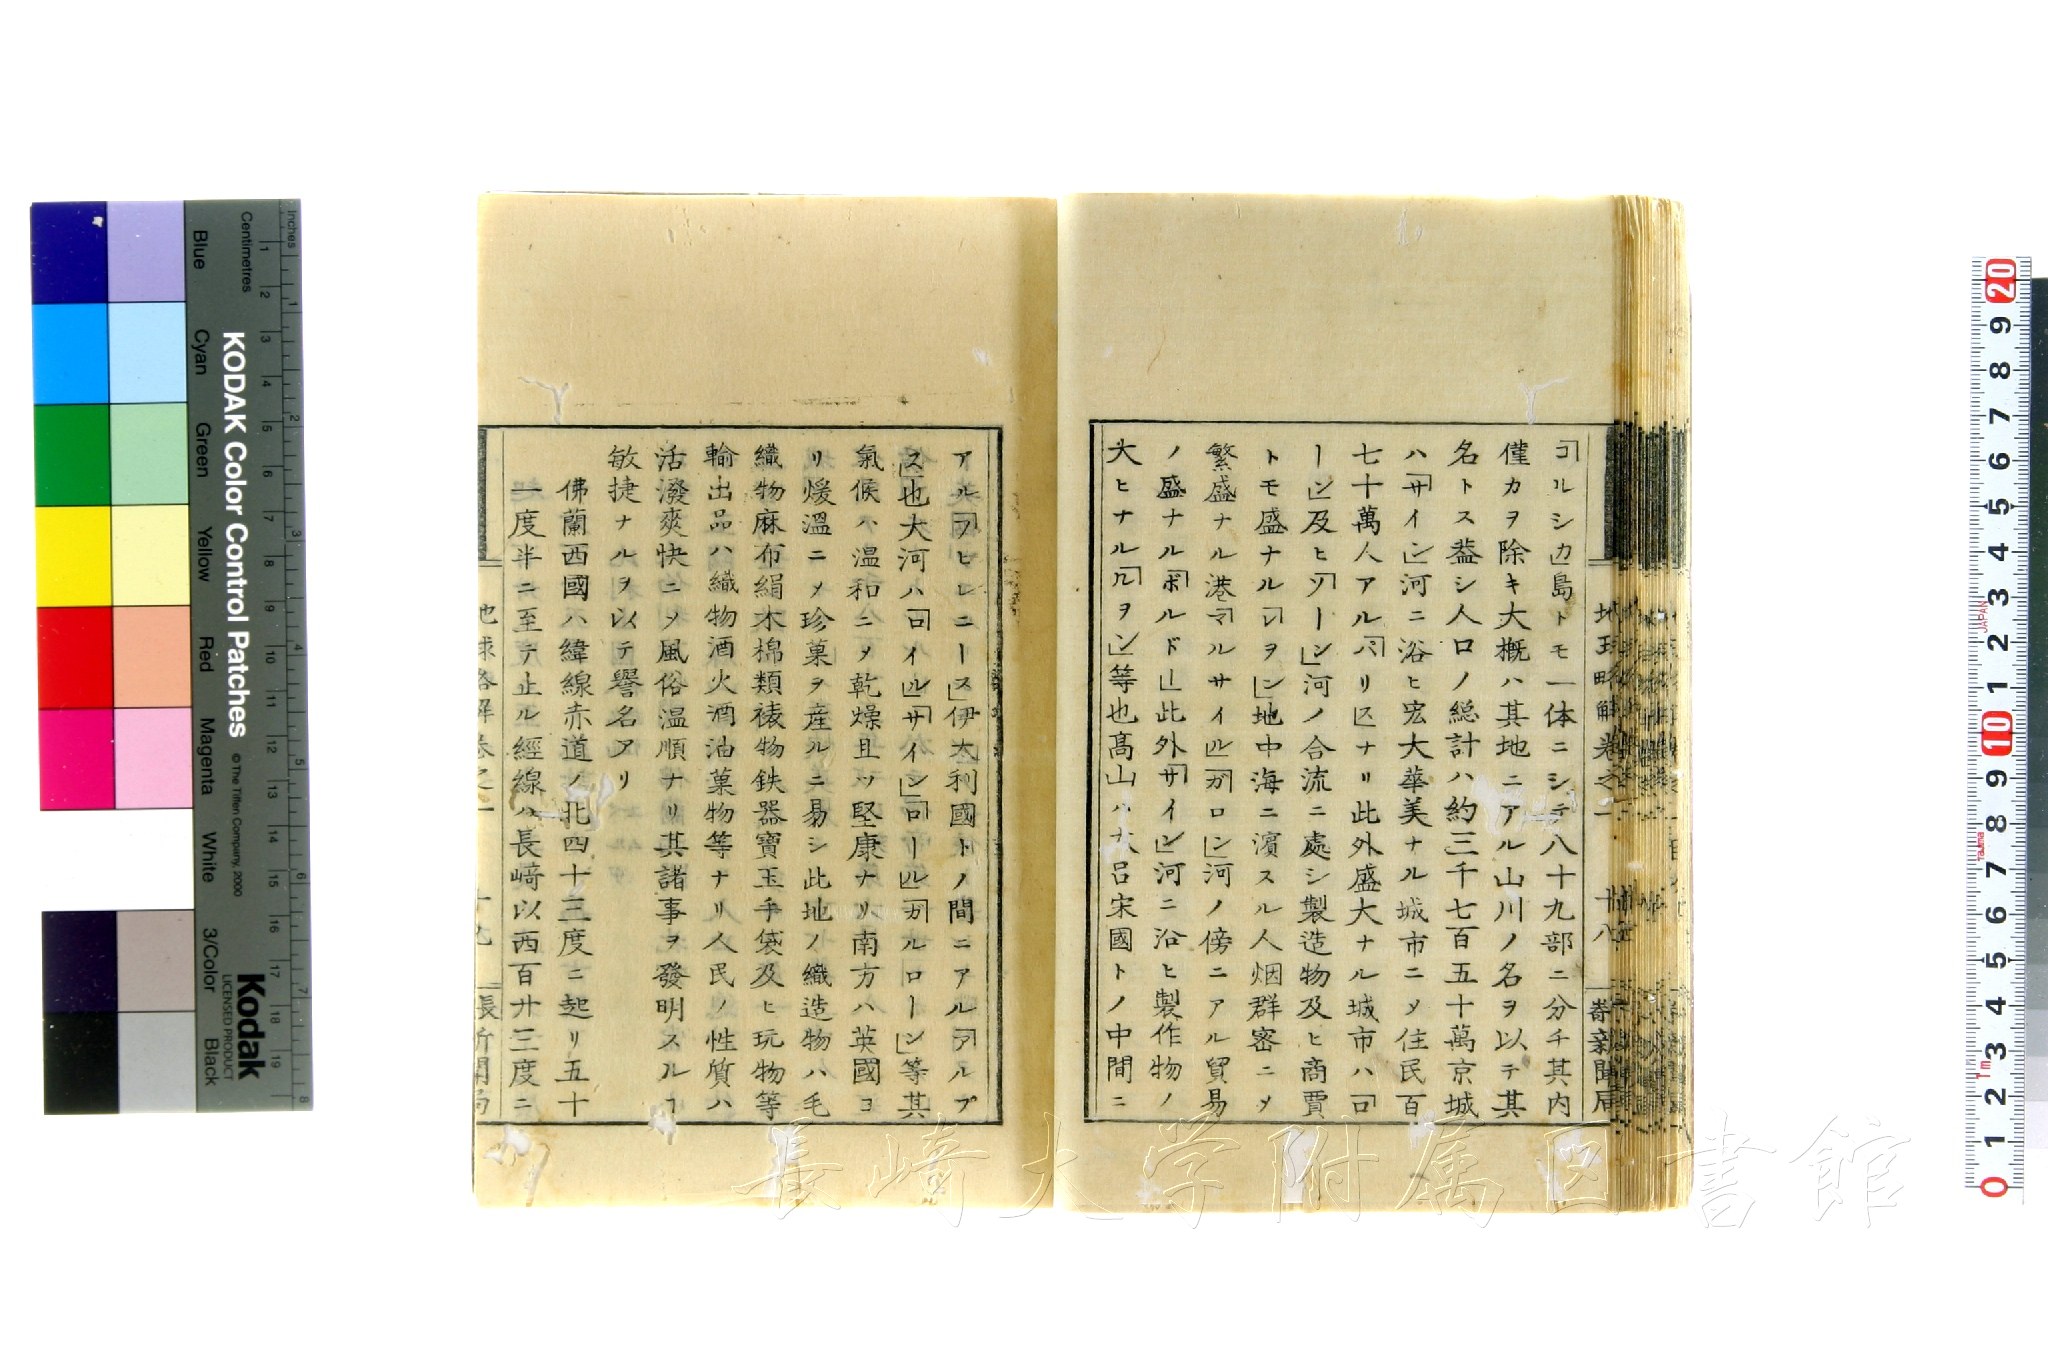 「コルシカ」島トモ一体ニシテ八十九部ニ分チ其内
僅カヲ除キ大概ハ其地ニアル山川ノ名ヲ以テ其
名トス蓋シ人口ノ総計ハ約三千七百五十萬京城
ハ「サイン」河ニ浴ヒ宏大華美ナル城市ニメ住民百
七十萬人アル「パリス」ナリ此外盛大ナル城市ハ「ロ
ーン」及ヒ「ソーン」河ノ合流ニ處シ製造物及ヒ商賈
トモ盛ナル「レヲン」地中海ニ濱スル人烟群密ニメ
繁盛ナル港「マルサイル」「ガロン」河ノ傍ニアル貿易
ノ盛ナル「ボルドー」此外「サイン」河ニ沿ヒ製作物ノ
大ヒナル「ルヲン」等也髙山ハ大呂宋國トノ中間ニ
アル「ヲヒレニース」伊太利國トノ間ニアル「アルプ
ス」也大河ハ「ロイル」「サイン」「ロール」「ガルローン」等其
氣候ハ温和ニメ乾燥且ツ堅康ナリ南方ハ英國ヨ
リ煖溫ニメ珍菓ヲ産ルニ易シ此地ノ織造物ハ毛
織物麻布絹木棉類裬物鉄器寶玉手袋及ヒ玩物等
輸出品ハ織物酒火酒油菓物等ナリ人民ノ性質ハ
活潑爽快ニメ風俗温順ナリ其諸事ヲ發明スルヿ
敏捷ナルヲ以テ譽名アリ
佛蘭西國ハ緯線赤道ノ北四十三度ニ起リ五十
一度半ニ至テ止ル經線ハ長﨑以西百廿三度ニ
地球略解巻之一
十八
新聞局
地球略解巻之一
十九
長新聞局
KODAK Color Control Patches
© The Tiffen Company, 2000
Kodak
LICENSED PRODUCT
Inches
Centimetres
Blue
Cyan
Green
Yellow
Red
Magenta
White
3/Color
Black
長崎大学附属図書館
JAPAN
Tajima